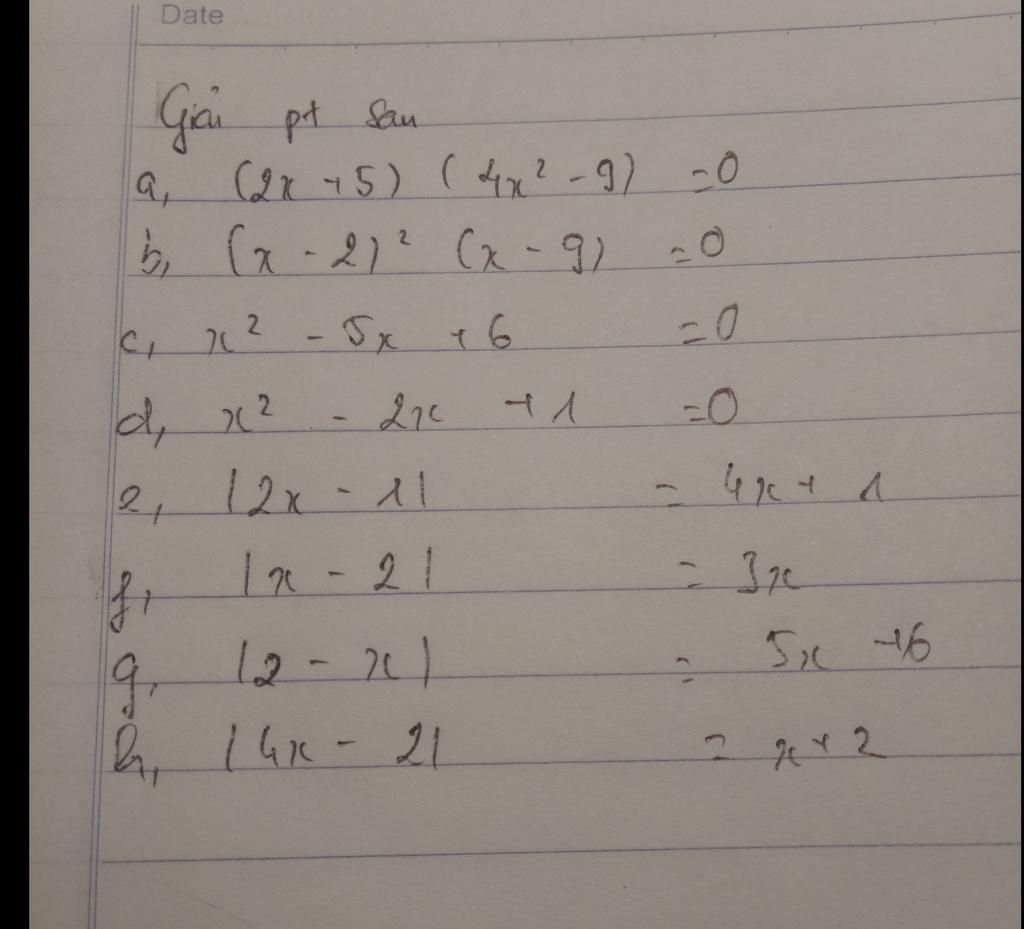 Date
Giải pt sau
a, (2x + 5) (4x² - 9) = 0
b, (x - 2)² (x - 9) = 0
c, x² - 5x + 6 = 0
d, x² - 2x + 1 = 0
e, |2x - 1| = 4x + 1
f, |x - 2| = 3x
g, |2 - x| = 5x + 6
h, |4x - 2| = x + 2